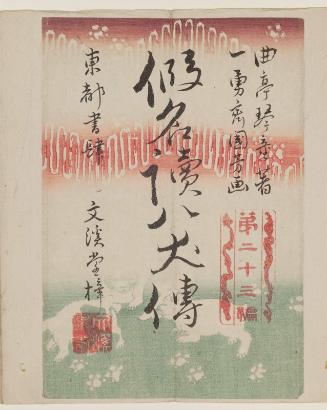 曲亭琴童著
一勇齋國芳画
第二十三編
假名讀八犬傳
東都書肆
文溪堂梓